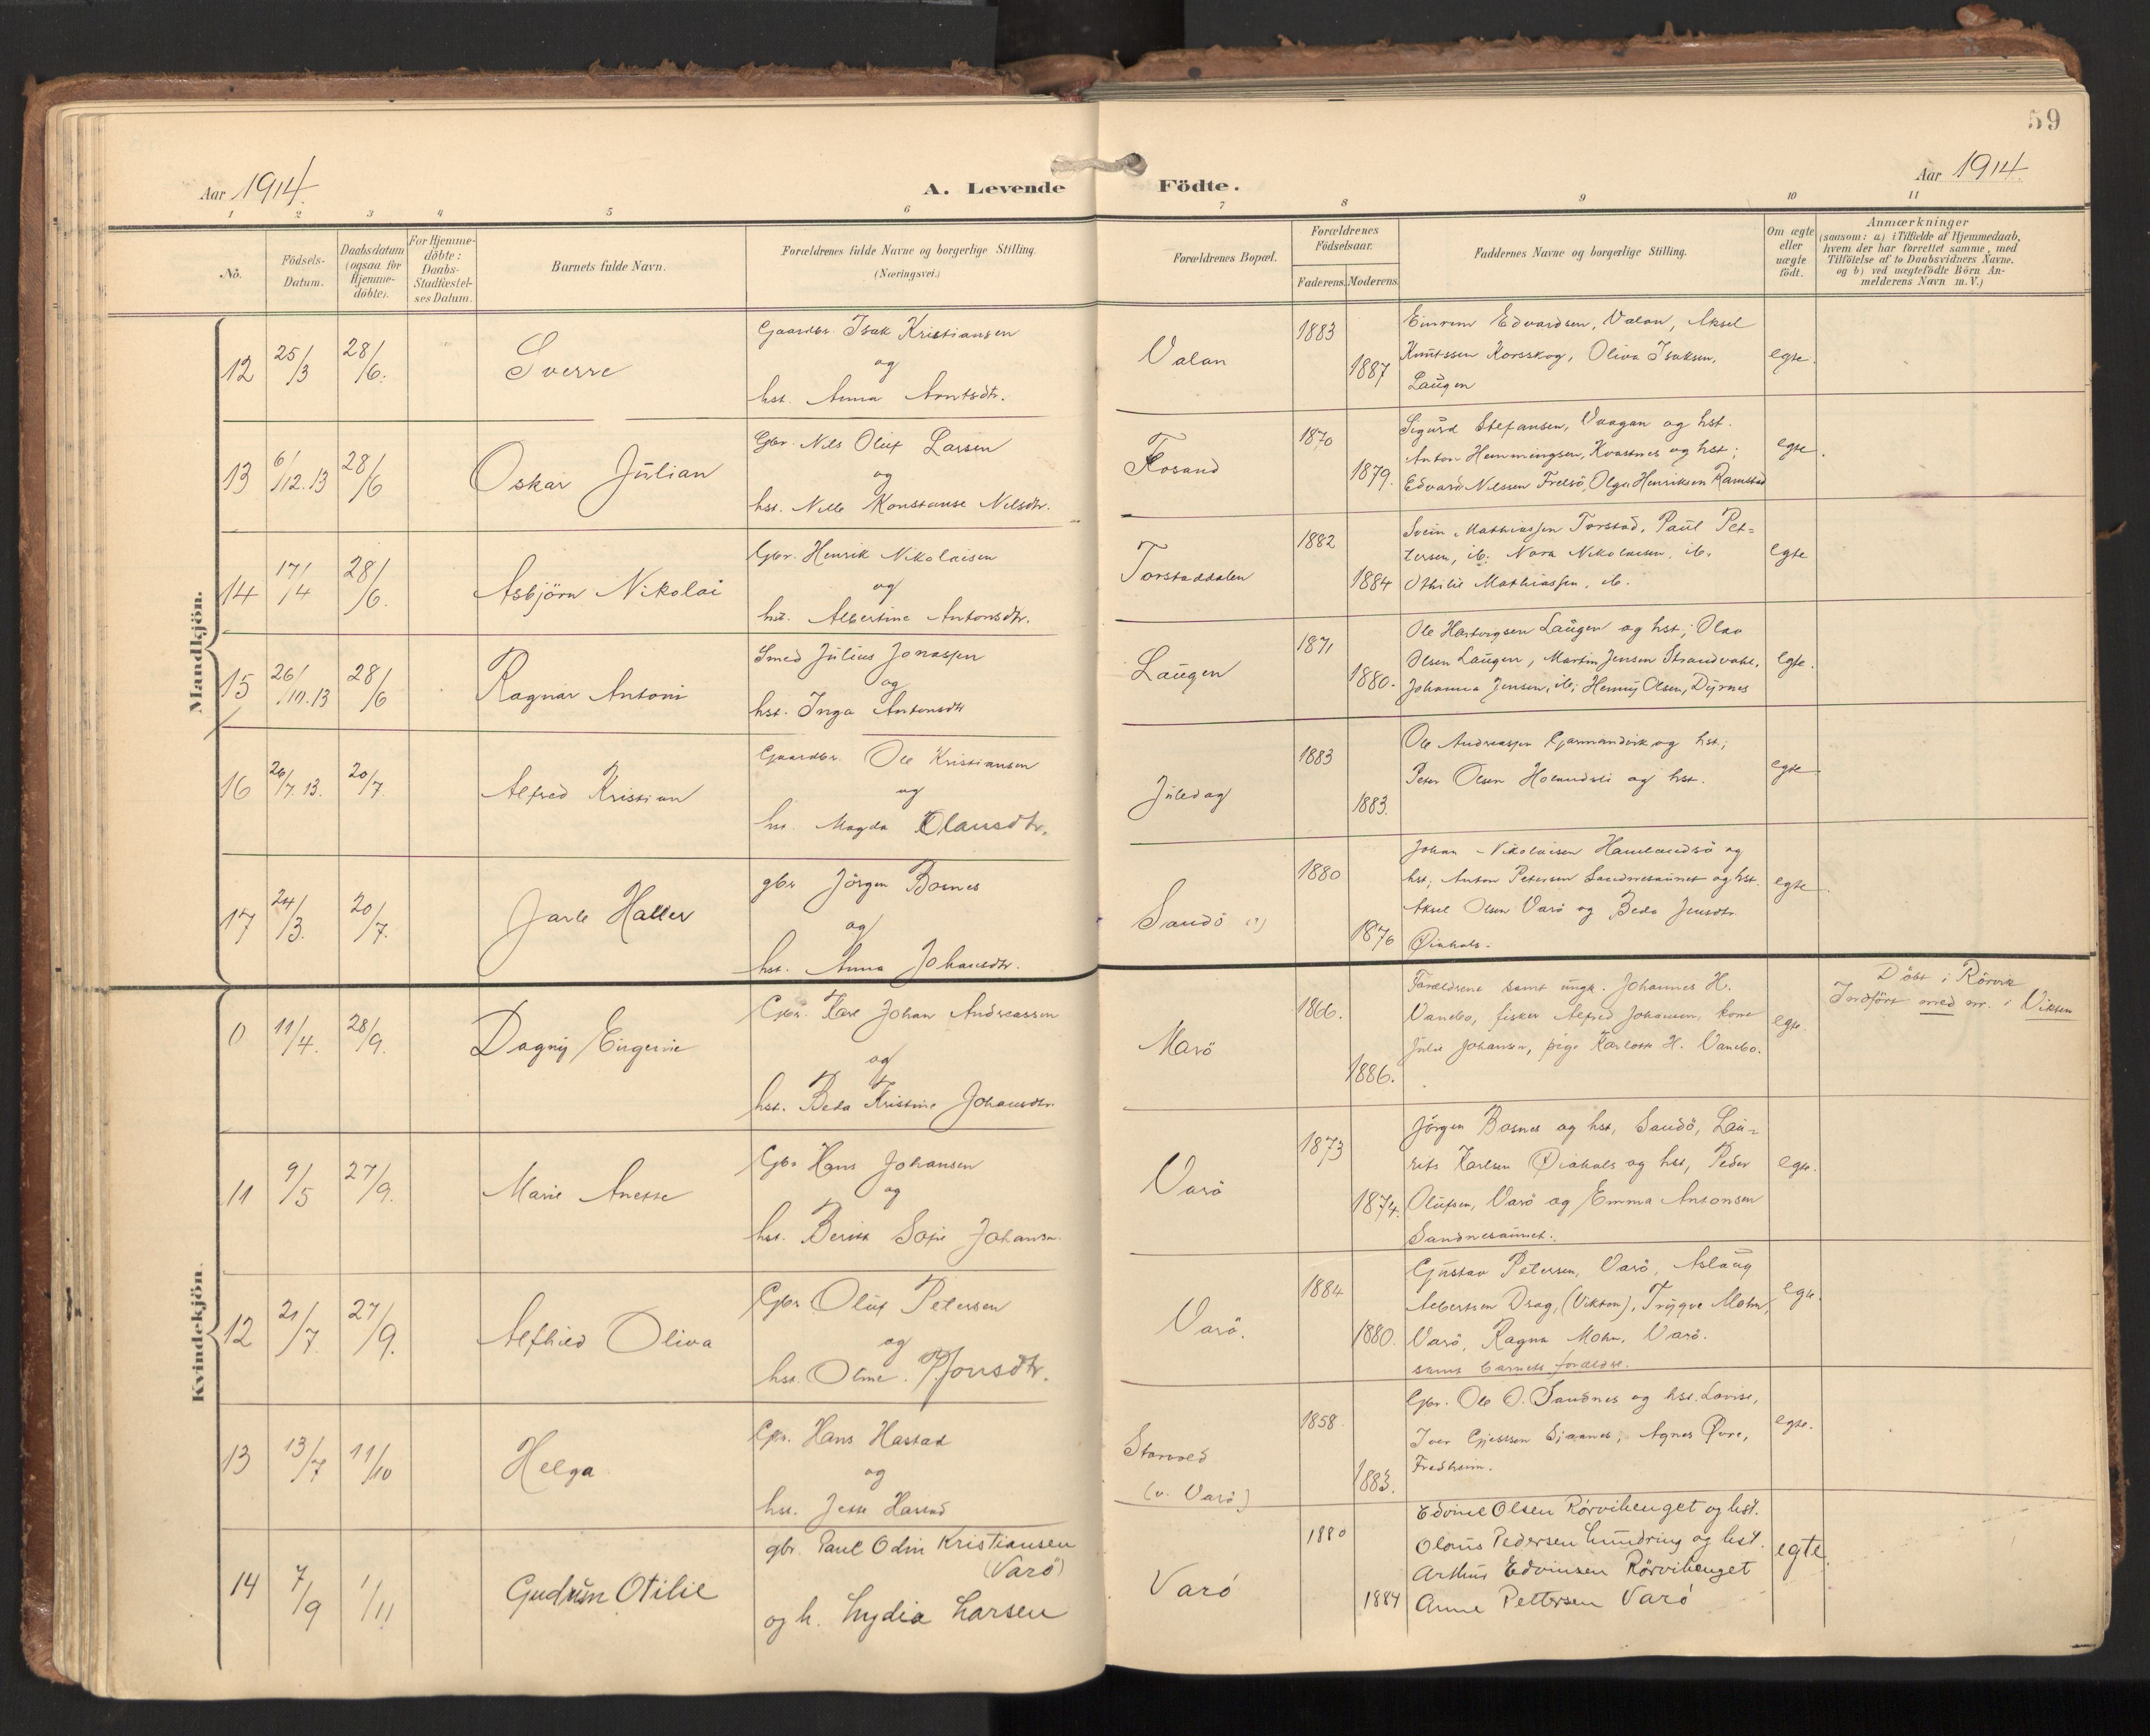 59
Aar 1914.
A. Levende
Födte.
Aar 1914
1 2 3 4 5 6 7 8 9 10 11
No.
Födsels-
Datum.
Daabsdatum
(ogsaa for
Hjemme-
döbte).
For Hjemme-
döbte:
Daabs-
Stadfæstel-
ses Datum.
Barnets fulde Navn.
Forældrenes fulde Navne og borgerlige Stilling.
(Næringsvei.)
Forældrenes Bopæl.
Forældrenes
Födselsaar.
Faderens. Moderens.
Faddernes Navne og borgerlige Stilling.
Om ægte
eller
uægte
födt.
Anmærkninger
(saasom: a) i Tilfælde af Hjemmedaab,
hvem der har forrettet samme, med
Tilföielse af to Daabsvidners Navne,
og b) ved uægtefödte Börn An-
melderens Navn m. V.)
Mandkjön.
12 25/3 28/6. Sverre
Gaardbr. Isak Kristiansen
og
hst. Anna Arntsdtr.
Valan
1883
1887
Edvardsen, Valan, Aksel
Knutssen Korsskog, Oliva Isaksen,
Laugen
egte.
13 6/12.13 28/6 Oskar Julian
Gbr. Nils Oluf Larsen
og
hst. Nille Konstanse Nilsdtr.
Flosand
1870
1879.
Sigurd Stefansen, Vaagan og hst.
Anton Hemmingsen, Kvastnes og hst;
Edvard Nilssen Frelsö, Olga Henriksen Ramstad
egte.
14 17/4 28/6. Asbjörn Nikolai
Gbr. Henrik Nikolaisen
og
hst. Albertine Antonsdtr.
Torstaddalen
1882
1884
Svein Mathiassen Torstad, Paul Pet=
tersen, ib. Nora Nikolaisen, ib.
Othilie Mathiassen, ib.
egte
15 26/10.13 28/6 Ragnar Antoni
Smed Julius Jonassen
og
hst. Inga Antonsdtr
Laugen
1871
1880.
Ole Hartvigsen Laugen og hst; Olav
Olsen Laugen, Martin Jensen Strandvahl,
Johanna Jensen, ib; Henny Olsen, Dyrnes
egte.
16 26/7.13. 20/7. Alfred Kristian
Gaardbr. Ole Kristiansen
og
hst. Magda Olausdtr.
Juledag
1883
1883.
Ole Andreassen Gjermandvik og hst;
Peter Olsen og hst.
egte
17 24/3. 20/7. Jarle Haller
gbr Jörgen Bosnes
og
hst. Anna Johansdtr.
Sandö
1880
1876
Johan Nikolaisen Hamlandsö og
hst; Anton Petersen Sandnesaunet og hst.
Aksel Olsen Varö og Beda Jensdtr.
Öiahals.
egte.
Kvindekjön.
0 11/4. 28/9. Dagny Eugenie
Gbr. Karl Johan Andreassen
og
hst. Beda Kristine Johansdtr.
Marö
1866.
1886.
Forældrene samt ungk. Johannes H.
Vanebo, fisker Alfred Johansen, kone
Julie Johansen, pige Karlotte H. Vanebo.
egte.
Döbt i Rörvik
Indfört med nr. i Vikten
11 9/5 27/9. Marie Anette
Gbr Hans Johansen
og
hst. Berit Sofie Johansn.
Varö
1873
1874.
Jörgen Bosnes og hst, Sandö, Lau=
rits Karlsen Öiahals og hst, Peder
Olufsen, Varö og Emma Antonsen
Sandnesaunet.
egte.
12 21/7 27/9. Alfhild Oliva
Gbr Oluf Petersen
og
hst. Oline Jonsdtr.
Varö.
1884
1880.
Gustav Petersen, Varö, Aslaug
Albertsen Drag, (Vikten), Trygve Mohn,
Varö, Ragna Mohn, Varö.
samt barnets forældre.
egte.
13 13/7 11/10 Helga
Gbr. Hans Hastad
og
hst. Hastad
(v. Varö)
1858.
1883.
Gbr. Ole O. Sandnes og hst. Lovise,
Iver Agnes Övre,
Fredheim.
egte.
14 7/9 1/11 Gudrun Otilie
gbr. Paul Odin Kristiansen
(Varö)
og h. Lydia Larsen
Varö
1880
1884
Edvine Olsen Rörvikenget og hst.
Olaus Pedersen Lundring og hst.
Arthur Edvinsen Rörvikenget
Anne Pettersen Varö
egte.